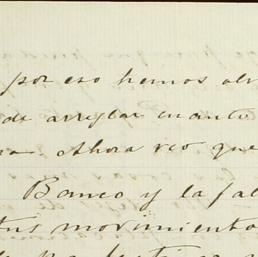 por eso hemos
de arreglar cuanto
Ahora veo que
Banco y la fal
tus movimiento